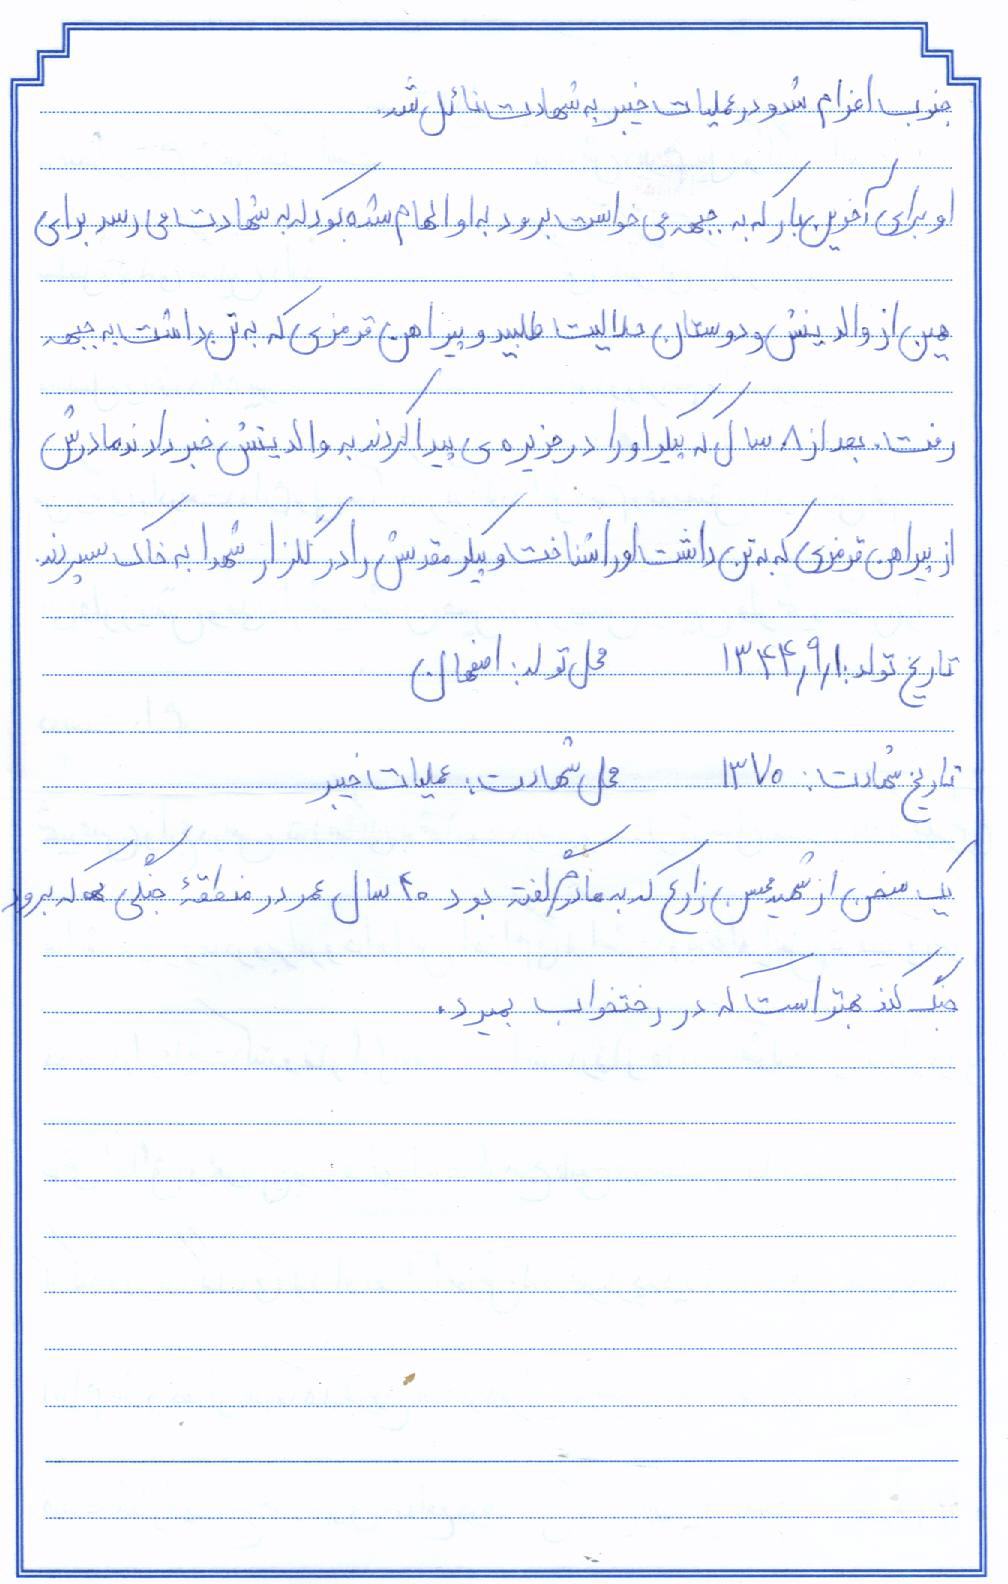 جنوب اعزام شد و در عملیات خیبر به شهادت نائل شد.
او برای آخرین بار که به جبهه می خواست برود به او الهام شده بود که به شهادت می رسد برای
همین از والدینش و دوستان حلالیت طلبید و پیراهن قرمزی که به تن داشت به جبهه
رفت. بعد از ۸ سال که پیکر او را در جزیره ی پیدا کردند به والدینش خبر دادند مادرش
از پیراهن قرمزی که به تن داشت او را شناخت و پیکر مقدسش را در گلزار شهدا به خاک سپردند.
تاریخ تولد: ۱۳۴۴٫۹٫۱ محل تولد: اصفهان
تاریخ شهادت: ۱۳۷۰ محل شهادت: عملیات خیبر
یک سخن از شهید محسن زارع که به مادرش گفته بود ۲۰ سال عمر در منطقهٔ جنگی که برود
جنگ کند بهتر است که در رختخواب بمیرد.